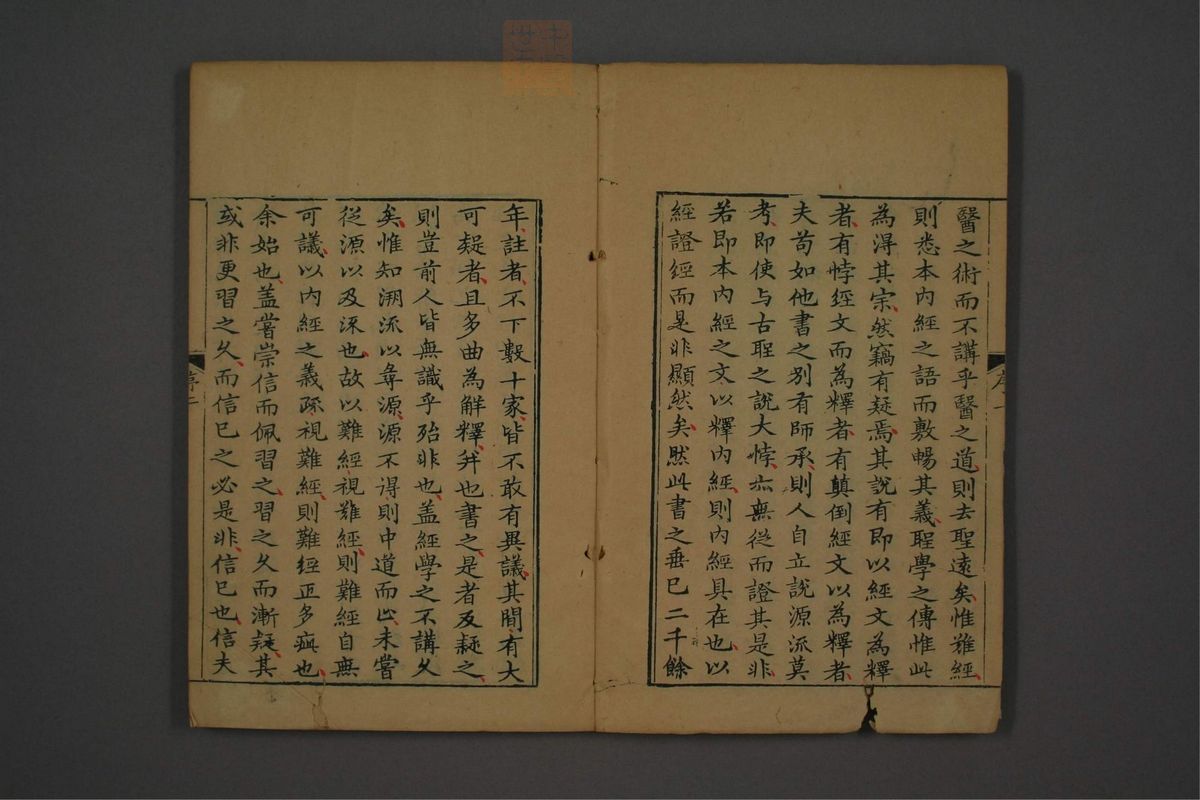 醫之術而不講乎醫之道則去聖遠矣惟難經
則悉本內經之語而敷暢其義聖學之傳惟此
為淂其宗然竊有疑焉其說有即以經文為釋
者有悖經文而為釋者有顛倒經文以為釋者
夫苟如他書之別有師承則人自立說源流莫
考即使与古聖之說大悖亦無從而證其是非
若即本內經之文以釋內經則內經具在也以
經證經而是非顯然矣然此書之垂已二千餘
年註者不下數十家皆不敢有異議其間有大
可疑者且多曲為解釋幷也書之是者反疑之
則豈前人皆無識乎殆非也盖經學之不講久
矣惟知溯流以尋源源不得則中道而止未嘗
從源以及流也故以難經視難經則難經自無
可議以內經之義疏視難經則難經正多疵也
余始也盖嘗崇信而佩習之習之久而漸疑其
或非更習之久而信已之必是非信已也信夫
序一
序二